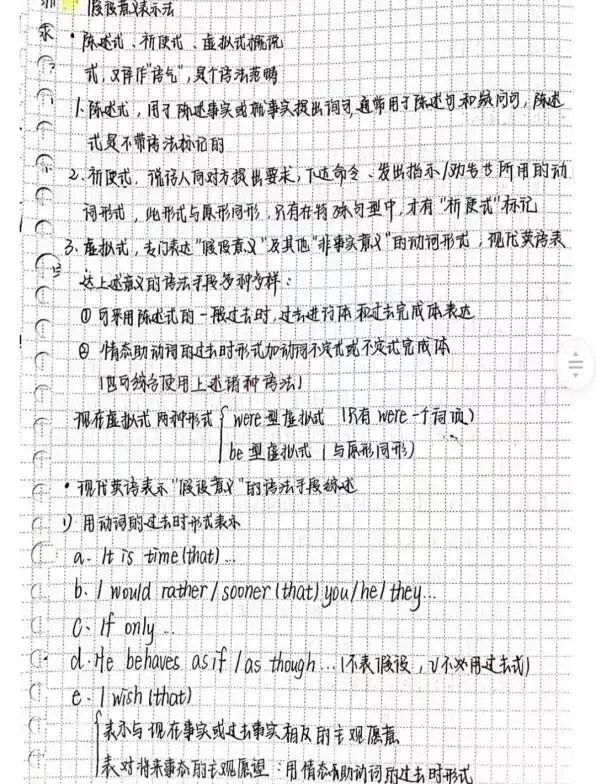 假设意义表示法
• 陈述式、祈使式、虚拟式概说
式，又译作“语气”，是个语法范畴
1. 陈述式，用于陈述事实或就事实提出询问，通常用于陈述句和疑问句，陈述
式是不带语法标记的
2. 祈使式，说话人向对方提出要求，下达命令、发出指示/劝告等所用的动
词形式，此形式与原形同形，只有在特殊句型中，才有“祈使式”标记
3. 虚拟式，专门表达“假设意义”及其他“非事实意义”的动词形式，现代英语表
达上述意义的语法手段多种多样：
① 可采用陈述式的一般过去时，过去进行体和过去完成体表达
② 情态助动词的过去时形式加动词不定式或不定式完成体
（也可综合使用上述诸种语法）
现在虚拟式两种形式 { were 型虚拟式（只有 were 一个词项）
be 型虚拟式（与原形同形）
• 现代英语表示“假设意义”的语法手段综述
1) 用动词的过去时形式表示
a. It is time (that)...
b. I would rather / sooner (that) you / he / they...
c. If only...
d. He behaves as if / as though...（不表假设，V不必用过去式）
e. I wish (that)
{ 表示与现在事实或过去事实相反的主观愿意
表对将来事态的主观愿望：用情态助动词的过去时形式